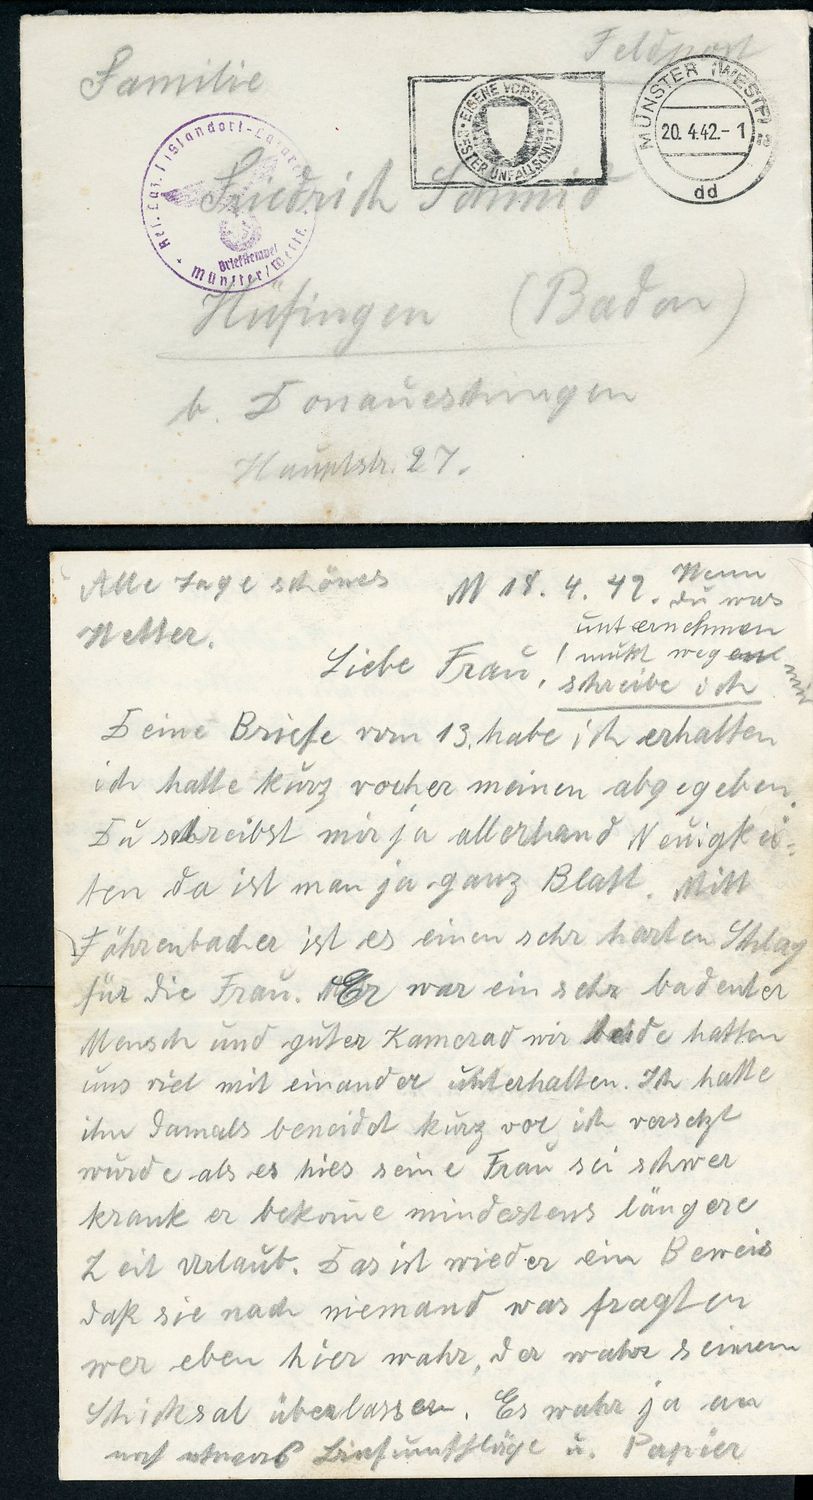 Feldpost
Familie
Friedrich Schmid
Hüfingen (Baden)
b. Donaueschingen
Hauptstr. 27.
MÜNSTER (WESTF)
20.4.42.-1
dd
EIGENE VORSICHT
BESTER UNFALLSCHUTZ
Res. Laz. I (Standort-Lazarett)
Briefstempel
Münster/Westf.
Alle Tage schönes
Wetter.
M 18. 4. 42.
Wenn
du was
unternehmen
mußt wegen mir
schreibe ich
Liebe Frau!
Deine Briefe vom 13. habe ich erhalten
ich hatte kurz vorher meinen abgegeben.
Du schreibst mir ja allerhand Neuigkei-
ten da ist man ja ganz Blatt. Mitt
Föhrenbacher ist es einen sehr harten Schlag
für die Frau. Er war ein sehr
Mensch und guter Kamerad wir beide hatten
uns viel mit einander unterhalten. Ich hatte
ihn damals beneidet kurz vor ich versetzt
wurde als es hies seine Frau sei schwer
krank er bekome mindestens längere
Zeit Urlaub. Das ist wieder ein Beweis
daß sie nach niemand was fragten
wer eben hier wahr, der wahr seinem
Schicksal überlassen. Es wahr ja an
noch etwas Briefumschläge u. Papier